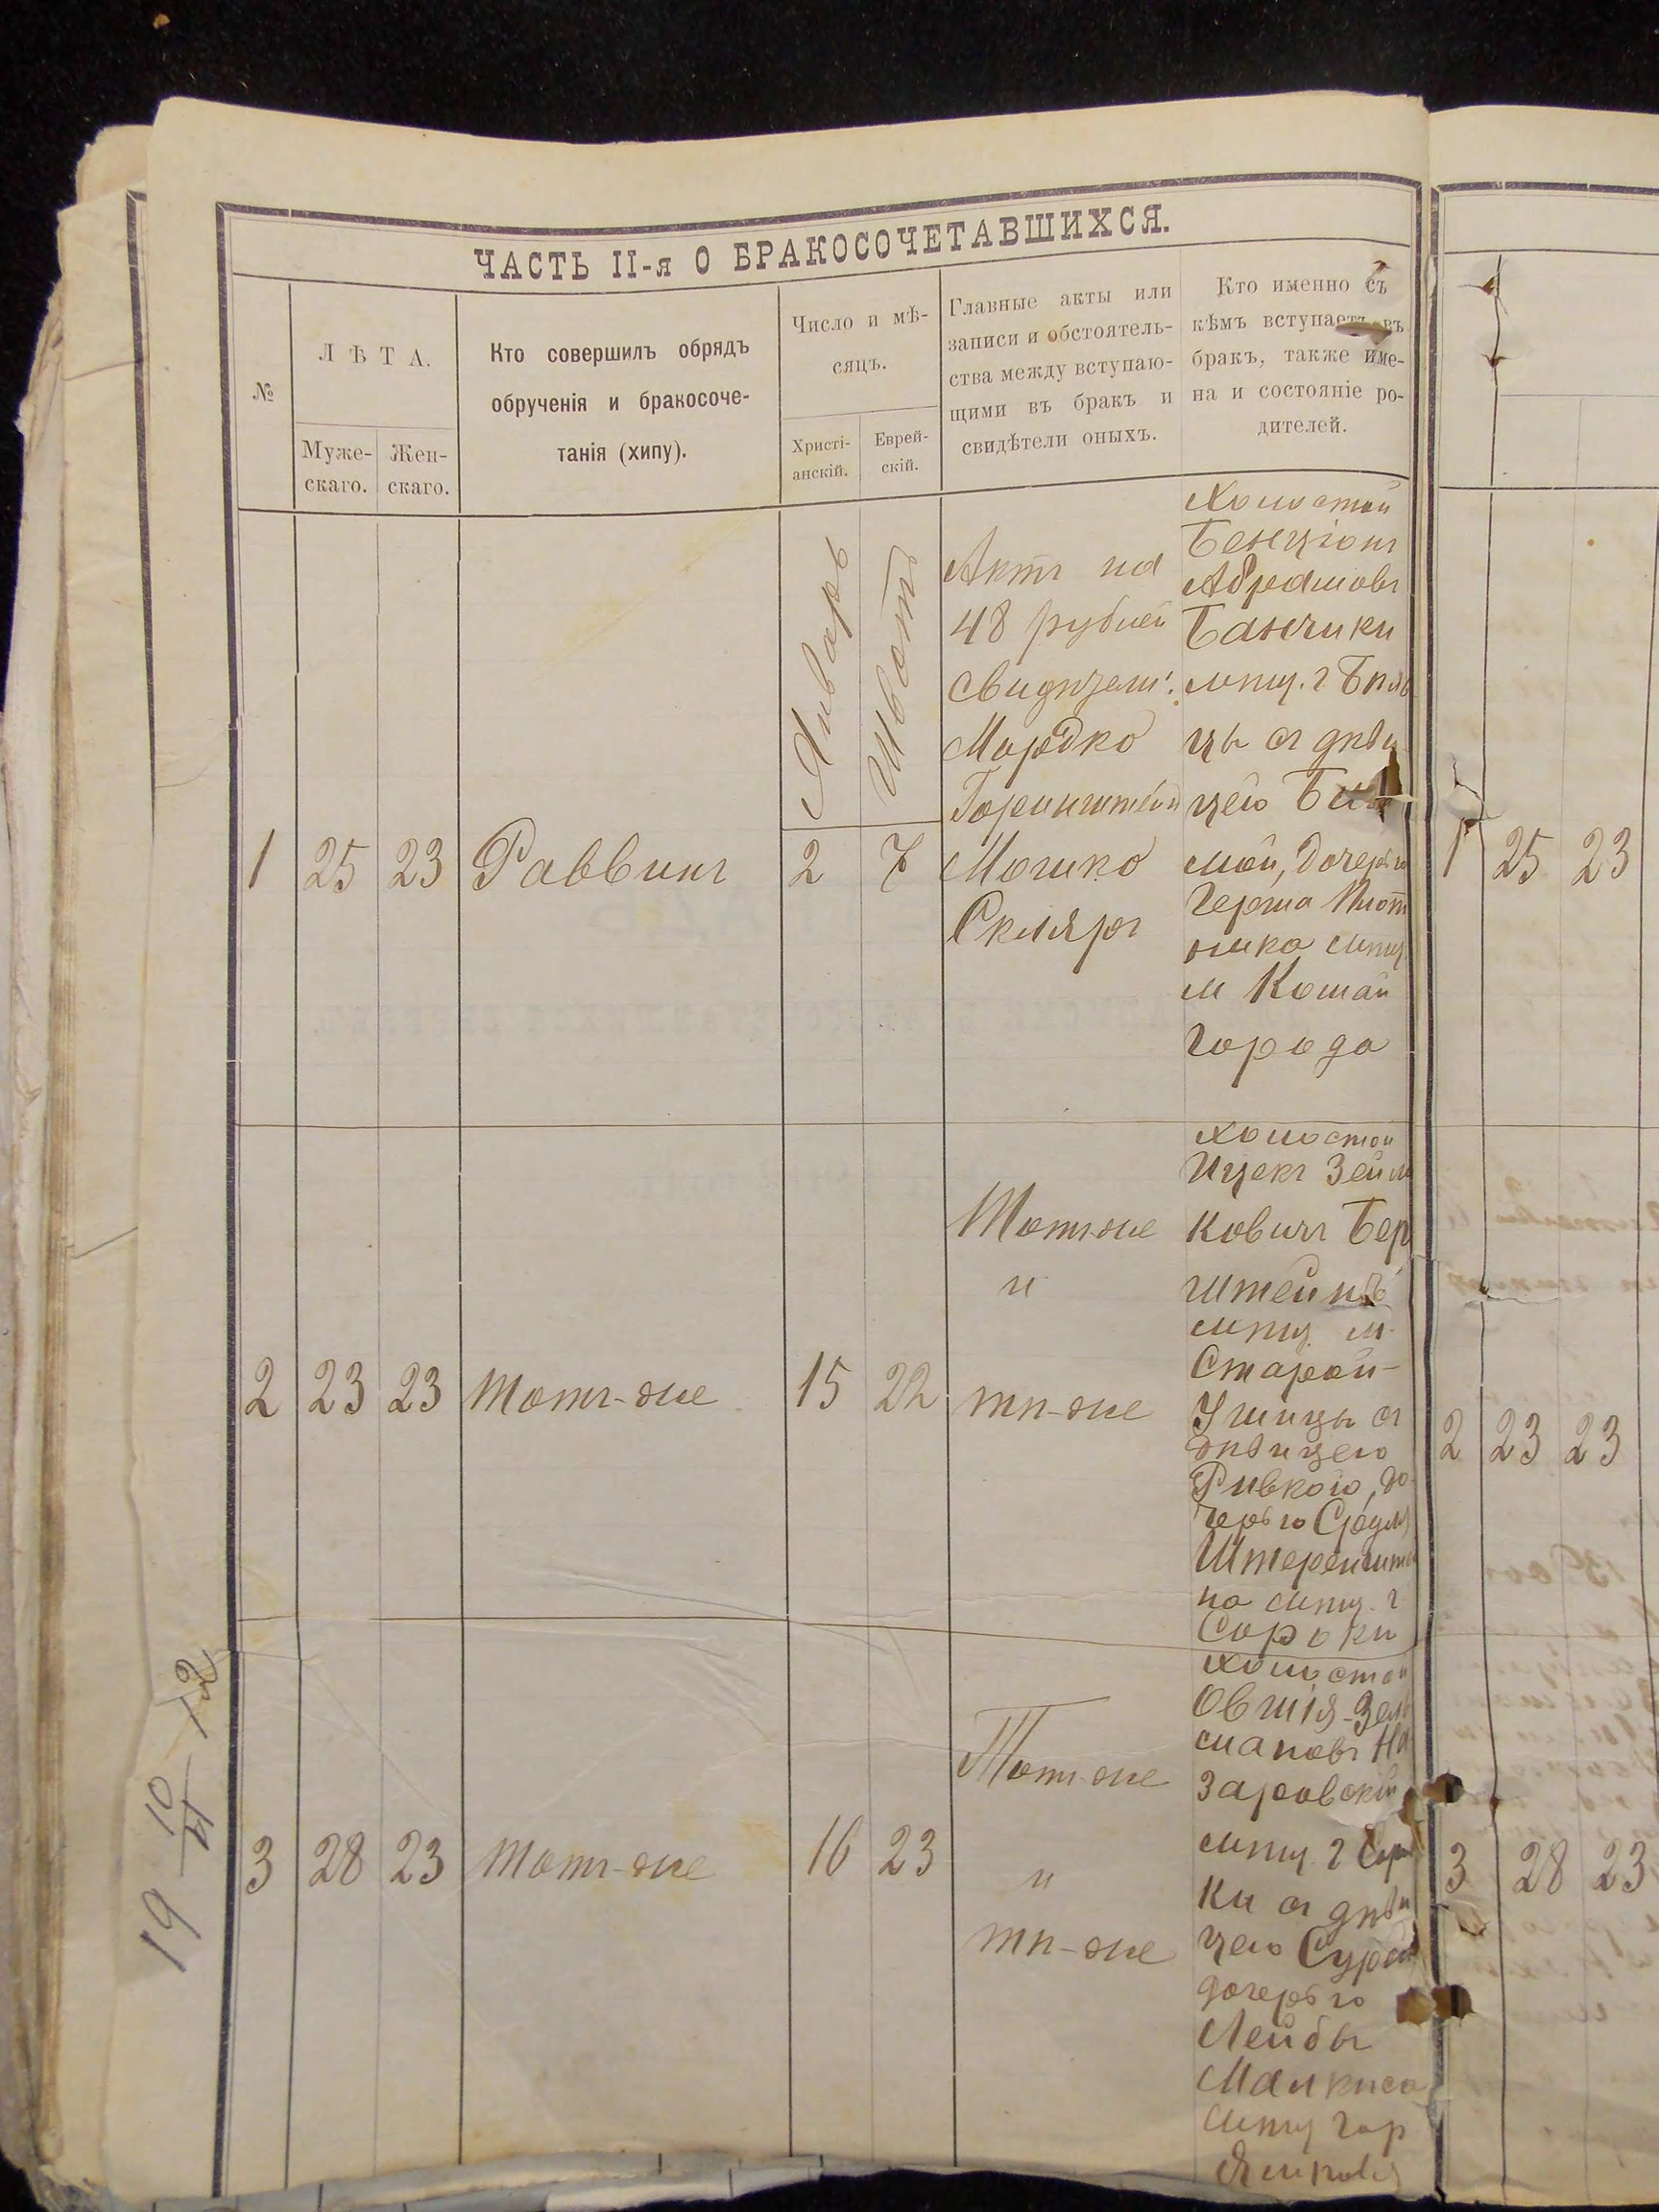 ЧАСТЬ II-я О БРАКОСОЧЕТАВШИХСЯ.
№
ЛѢТА.
Муже-
скаго.
Жен-
скаго.
Кто совершилъ обрядъ
обрученія и бракосоче-
танія (хипу).
Число и мѣ-
сяцъ.
Христі-
анскій.
Еврей-
скій.
Главные акты или
записи и обстоятель-
ства между вступаю-
щими въ бракъ и
свидѣтели оныхъ.
Кто именно съ
кѣмъ вступаетъ въ
бракъ, также име-
на и состояніе ро-
дителей.
Январь
Шватъ
1 25 23 Раввинъ 2 7
Актъ на
48 рублей
свидѣтели:
Мордко
Горенштейн
Мошко
Скляръ
Холостой
Бенціонъ
Абрамовъ
Банчики
мѣщ. г. Бѣль
цы съ дѣви
цею
дочерью
Герша Плот
ника мѣщ.
м Копай
города
1 25 23
2 23 23 тотъ-же 15 22
Тотъ-же
и
тѣ-же
холостой
Ицекъ Зейл
ковичъ Бер
штейнъ
мѣщ м.
Старой-
Ушицы съ
дѣвицею
Ривкою, до
черью Сруля
Штеренште
на мѣщ. г
Сороки
2 23 23
3 28 23 тотъ-же 16 23
Тотъ-же
и
тѣ-же
холостой
Овшія-Зель
мановъ На
заровскій
мѣщ. г Соро
ки съ дѣви
цею Сурою
дочерью
Лейбы
мѣщ гор
3 28 23
19 10/II 12